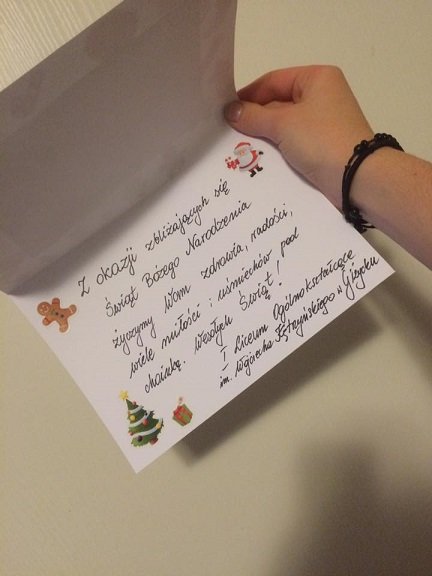 Z okazji zbliżających się
Świąt Bożego Narodzenia
życzymy Wam zdrowia, radości,
wiele miłości i uśmiechów pod
choinkę. Wesołych Świąt!
I Liceum Ogólnokształcące
im. Wojciecha Kętrzyńskiego w Giżycku